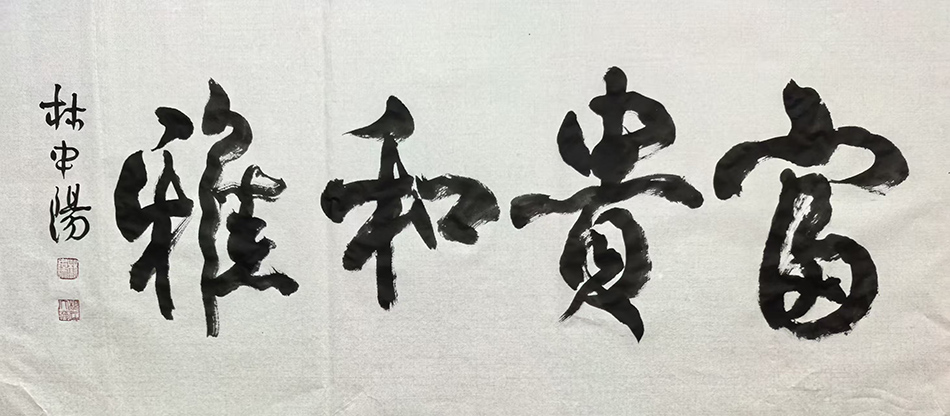 富貴和雅
林中陽